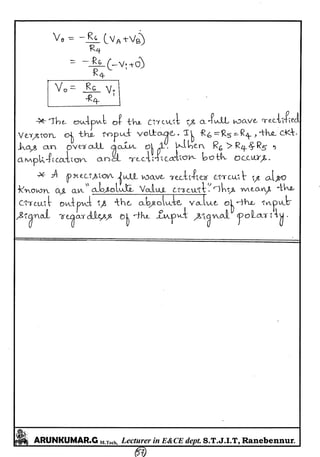 V₀ = -R6/R4 (VA+VB)
= -R6/R4 (-Vi+0)
V₀ = R6/R4 Vi
* The output of the circuit is a full wave rectified
version of the input voltage. If R6=R5=R4, the ckt.
has an overall gain of 1. When R6>R4&R5,
amplification and rectification both occurs.
* A precision full wave rectifier circuit is also
known as an "absolute value circuit". This means the
circuit output is the absolute value of the input
signal regardless of the input signal polarity.
ARUNKUMAR.G M.Tech, Lecturer in E&CE dept. S.T.J.I.T, Ranebennur.